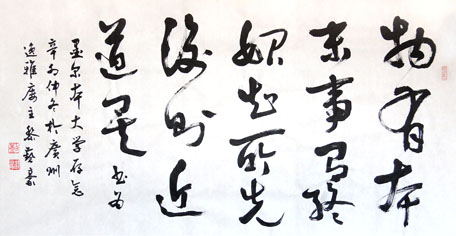 物有本
末事有終
始知所先
後則近
道矣 書為
墨尔本大学存念
辛卯仲冬於廣州
逸雅廔主